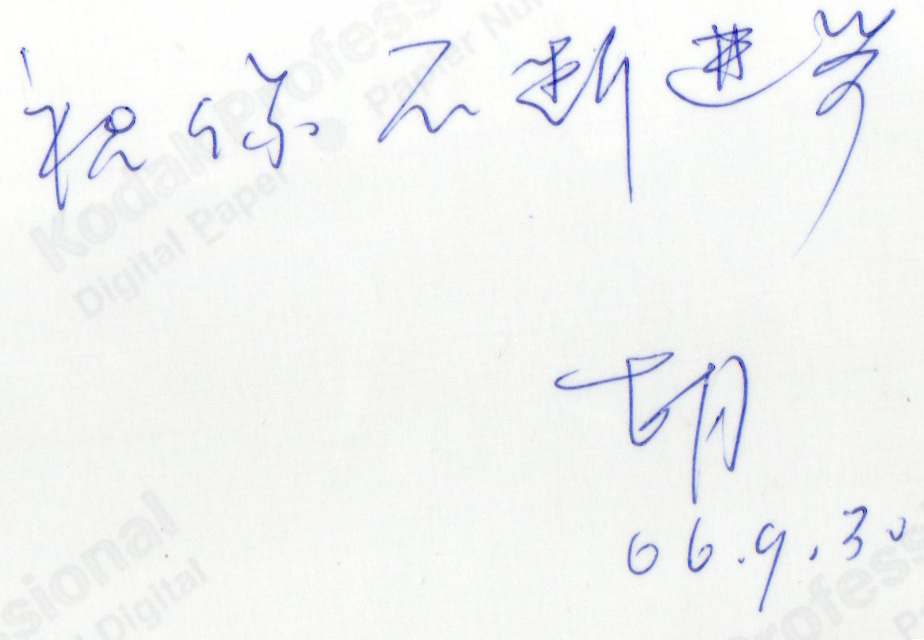 祝你不断进步
胡
06.9.30
Kodak Professional
Digital Paper
sional
Digital